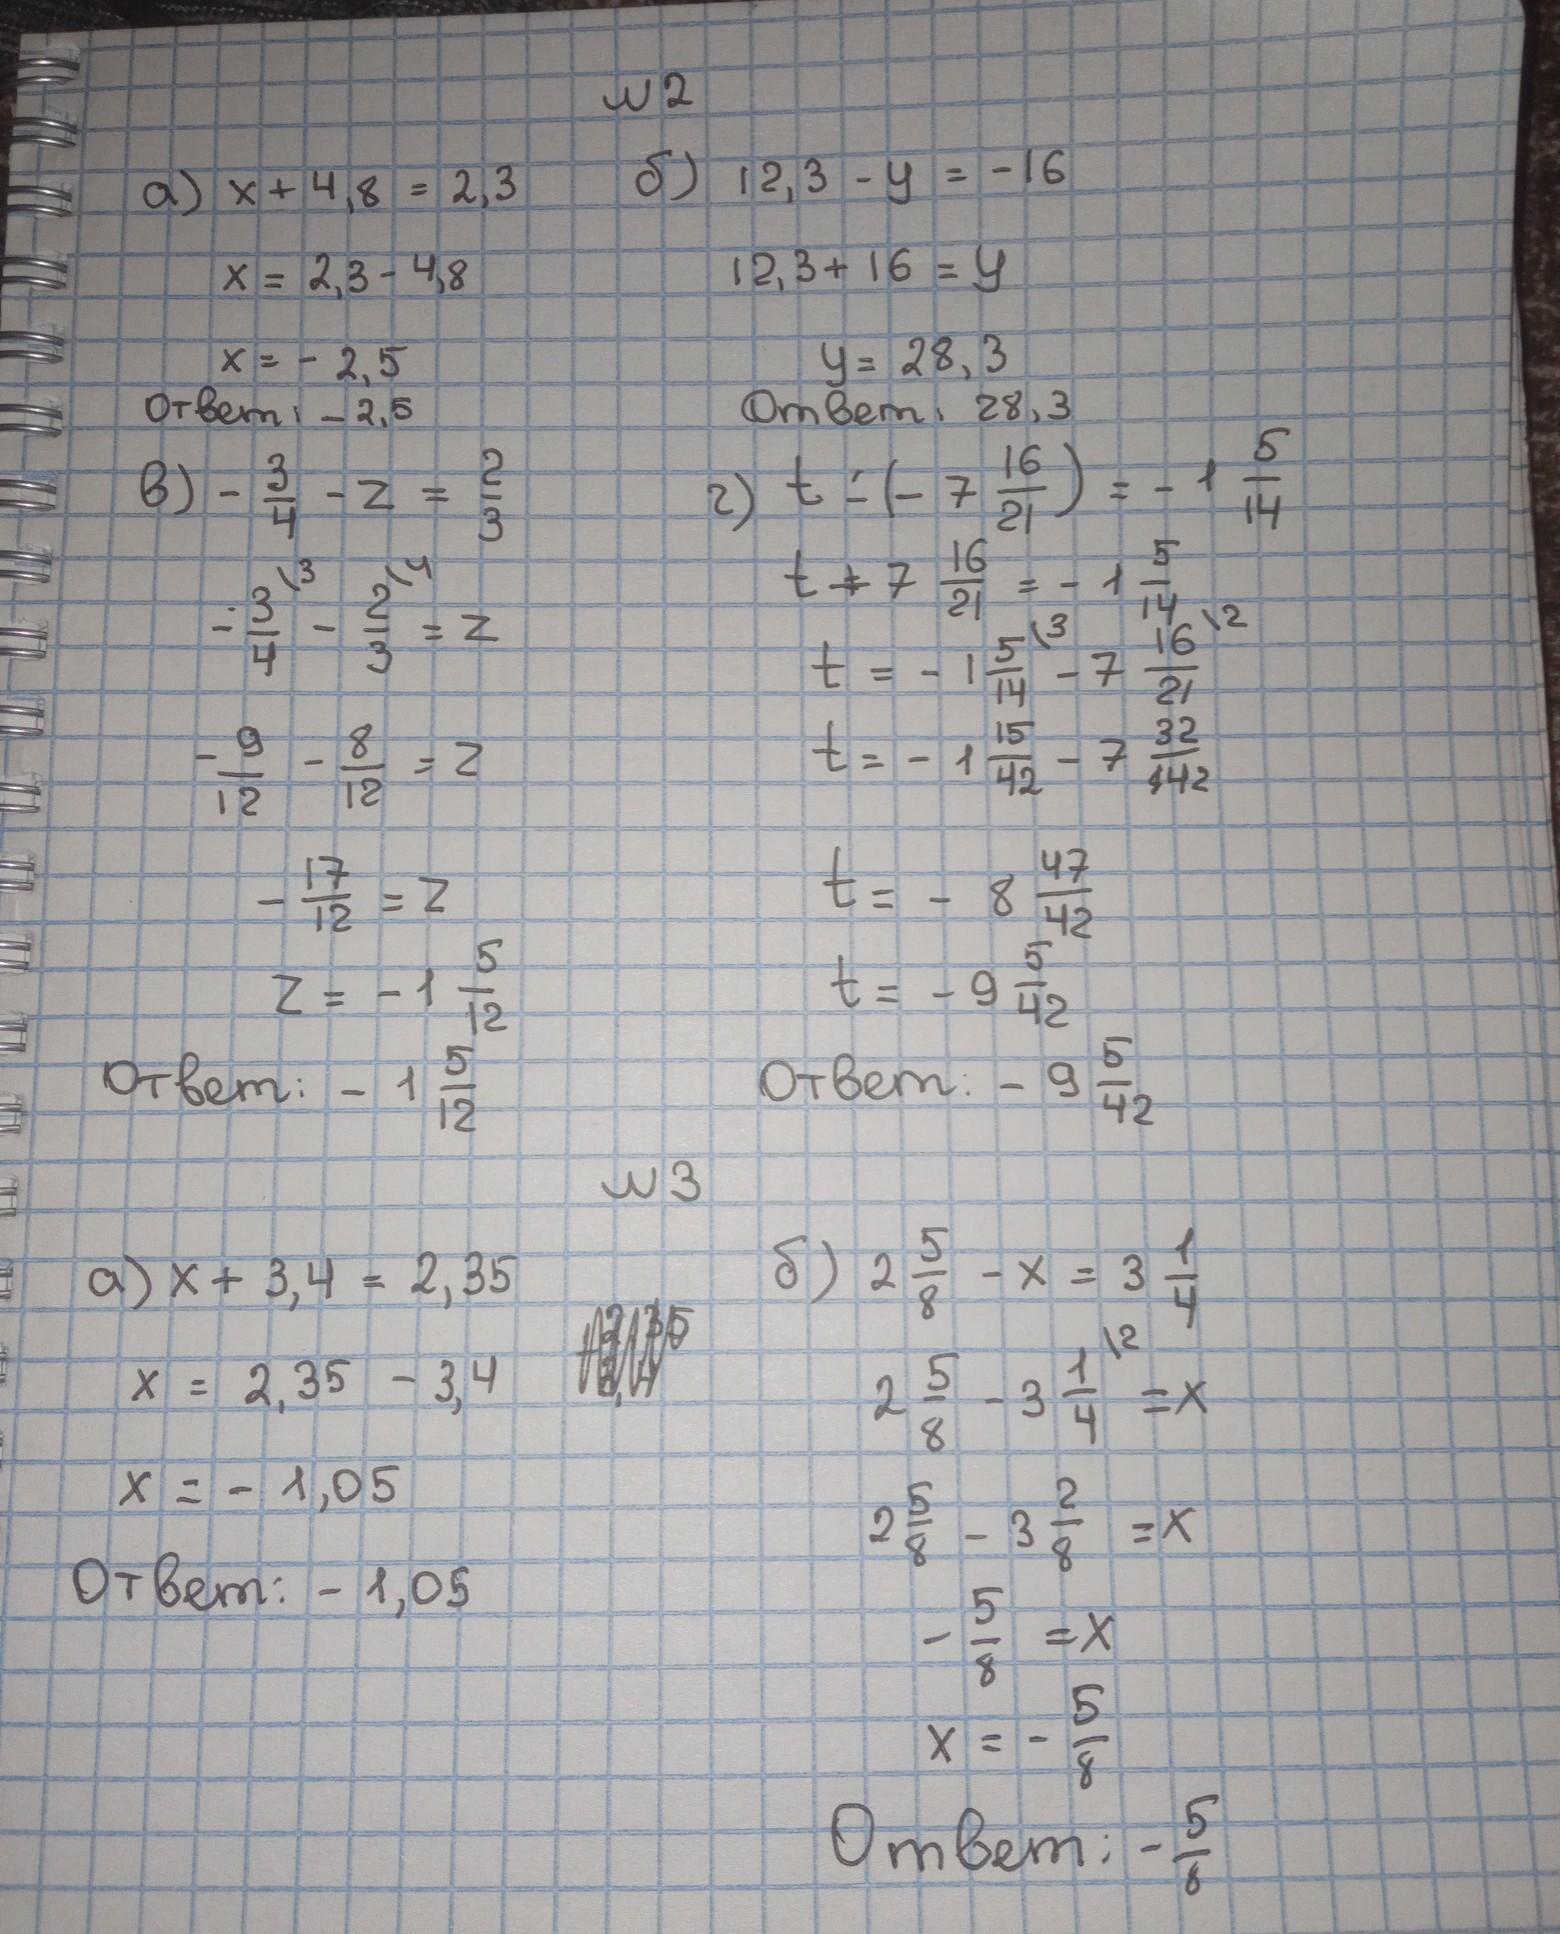 №2
а) x + 4,8 = 2,3
x = 2,3 - 4,8
x = - 2,5
Ответ: - 2,5
б) 12,3 - y = -16
12,3 + 16 = y
y = 28,3
Ответ: 28,3
в) - 3/4 - z = 2/3
- 3/4 \3 - 2/3 \4 = z
- 9/12 - 8/12 = z
- 17/12 = z
z = - 1 5/12
Ответ: - 1 5/12
г) t - (- 7 16/21) = - 1 5/14
t + 7 16/21 = - 1 5/14
t = - 1 5/14 \3 - 7 16/21 \2
t = - 1 15/42 - 7 32/42
t = - 8 47/42
t = - 9 5/42
Ответ: - 9 5/42
№3
а) x + 3,4 = 2,35
x = 2,35 - 3,4
x = - 1,05
Ответ: - 1,05
б) 2 5/8 - x = 3 1/4
2 5/8 - 3 1/4 \2 = x
2 5/8 - 3 2/8 = x
- 5/8 = x
x = - 5/8
Ответ: - 5/8